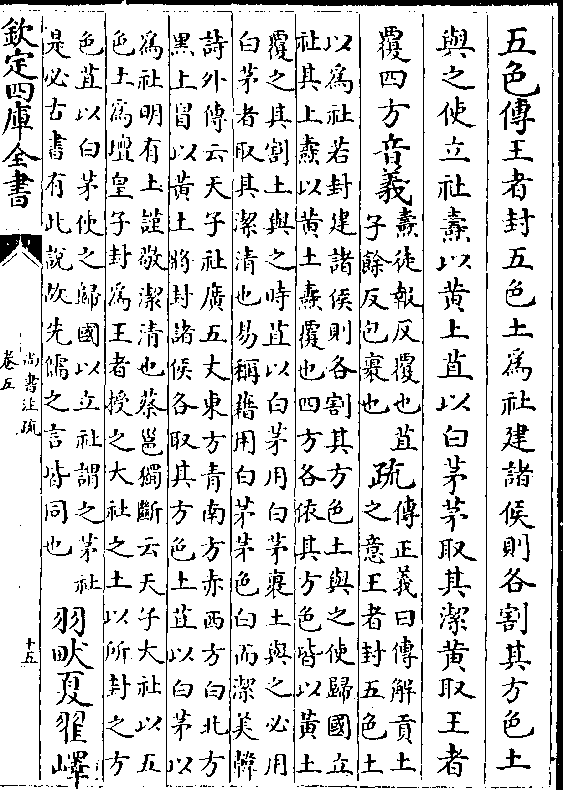 五色傳王者封五色土爲社建諸侯則各割其方色土
與之使立社燾以黃土苴以白茅茅取其潔黃取王者
覆四方音義
燾徒報反覆也苴
子餘反包裹也
疏
傳正義曰傳解貢土
之意王者封五色土
以爲社若封建諸侯則各割其方色土與之使歸國立
社其上燾以黃土燾覆也四方各依其方色皆以黃土
覆之其割土與之時苴以白茅用白茅裹土與之必用
白茅者取其潔清也易稱藉用白茅茅色白而潔美韓
詩外傳云天子社廣五丈東方青南方赤西方白北方
黑上冒以黃土將封諸侯各取其方色土苴以白茅以
爲社明有土謹敬潔清也蔡邕獨斷云天子大社以五
色土爲壇皇子封爲王者授之大社之土以所封之方
色苴以白茅使之歸國以立社謂之茅社
是必古書有此說故先儒之言皆同也
羽畎夏翟嶧
欽定四庫全書
尚書注疏
卷五
十五